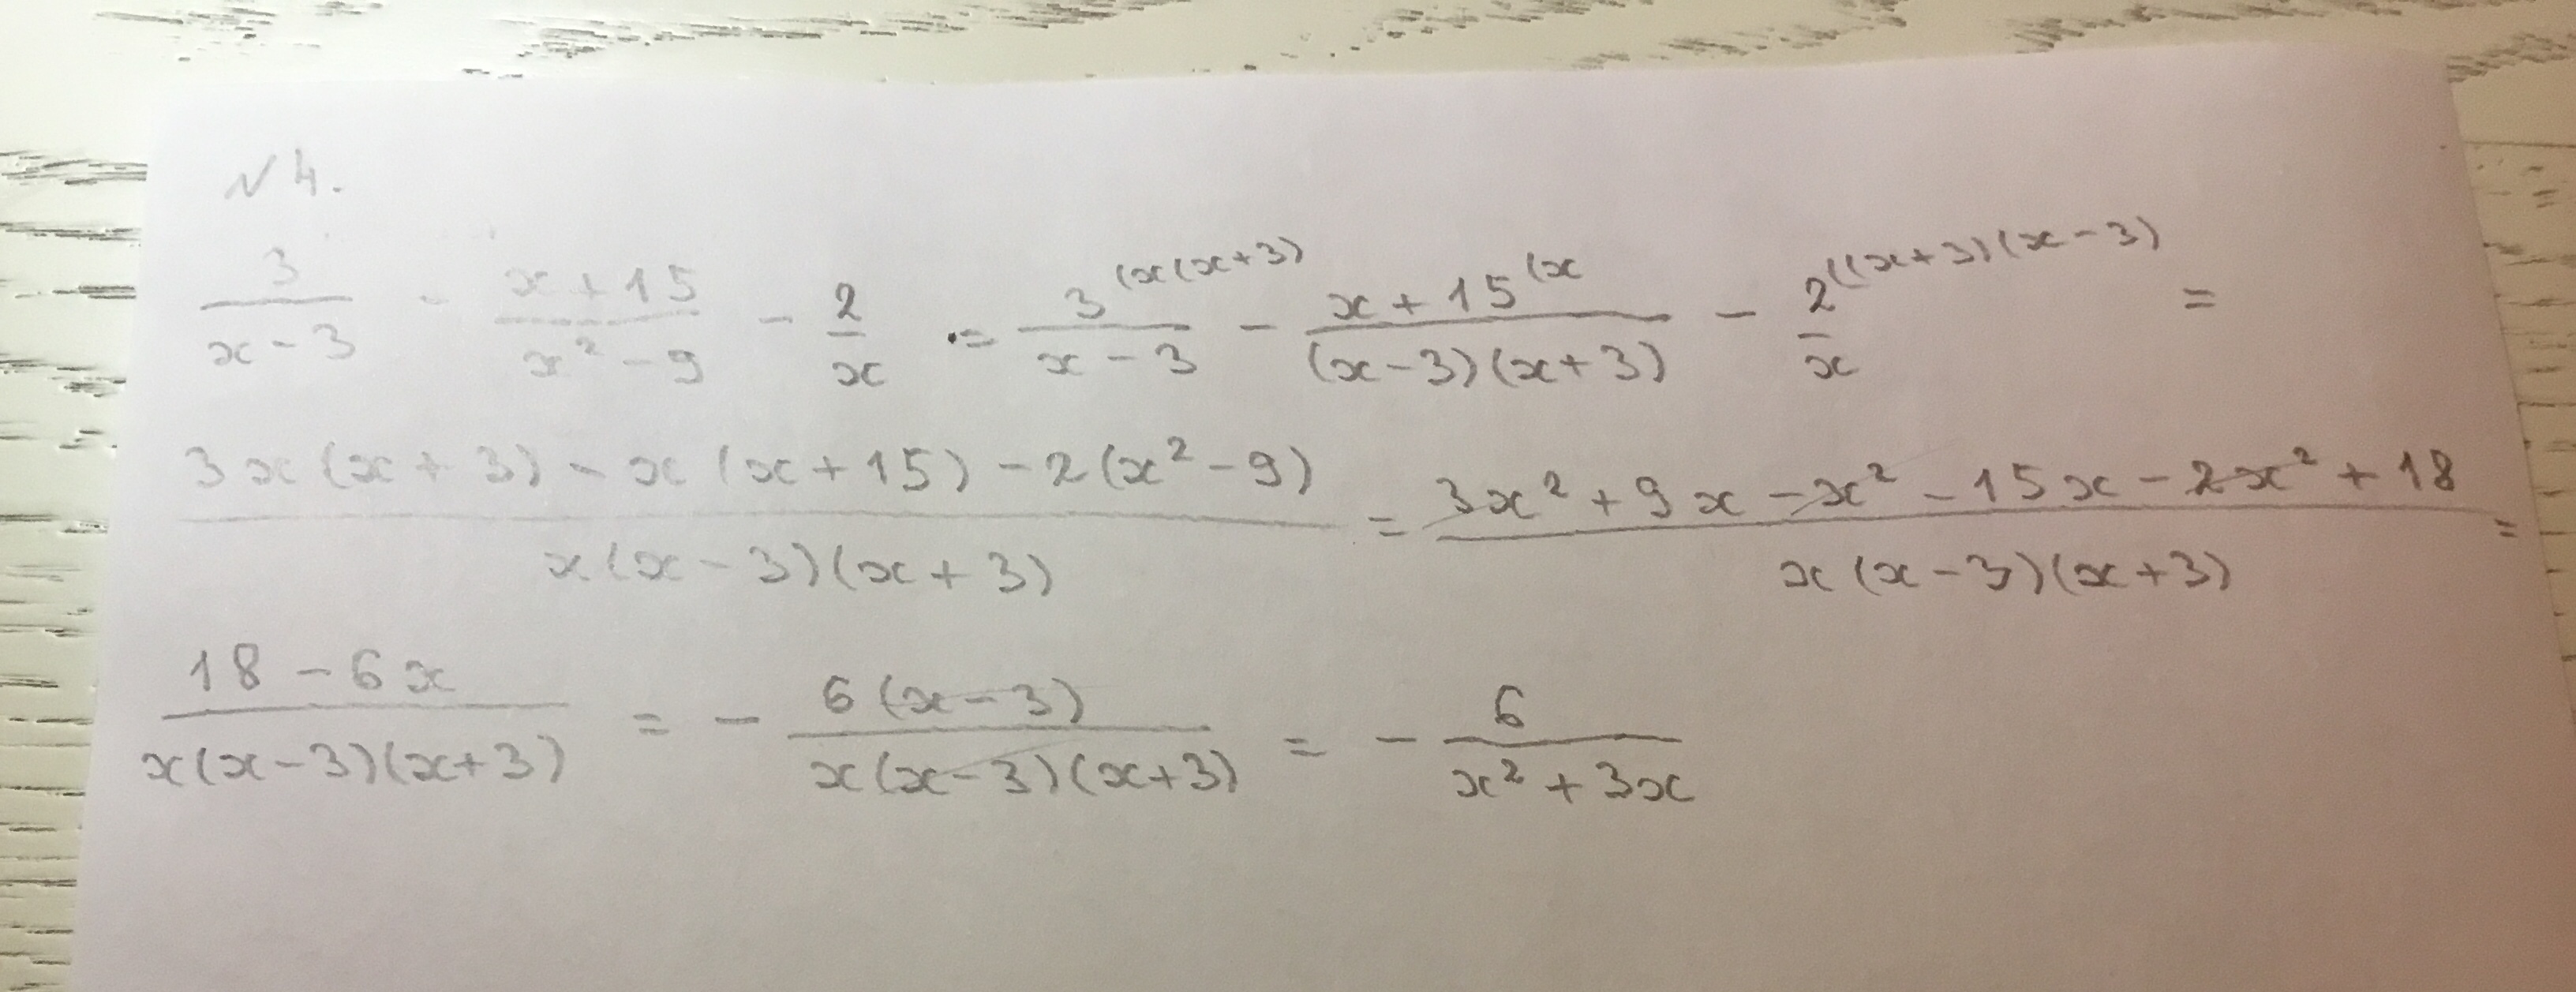 № 4.
3/(x-3) - (x+15)/(x²-9) - 2/x = 3^(x(x+3)/(x-3) - (x+15^(x)/((x-3)(x+3)) - 2^((x+3)(x-3)/x =
(3x(x+3) - x(x+15) - 2(x²-9))/(x(x-3)(x+3)) = (3x²+9x-x²-15x-2x²+18)/(x(x-3)(x+3)) =
(18-6x)/(x(x-3)(x+3)) = - 6(x-3)/(x(x-3)(x+3)) = - 6/(x²+3x)